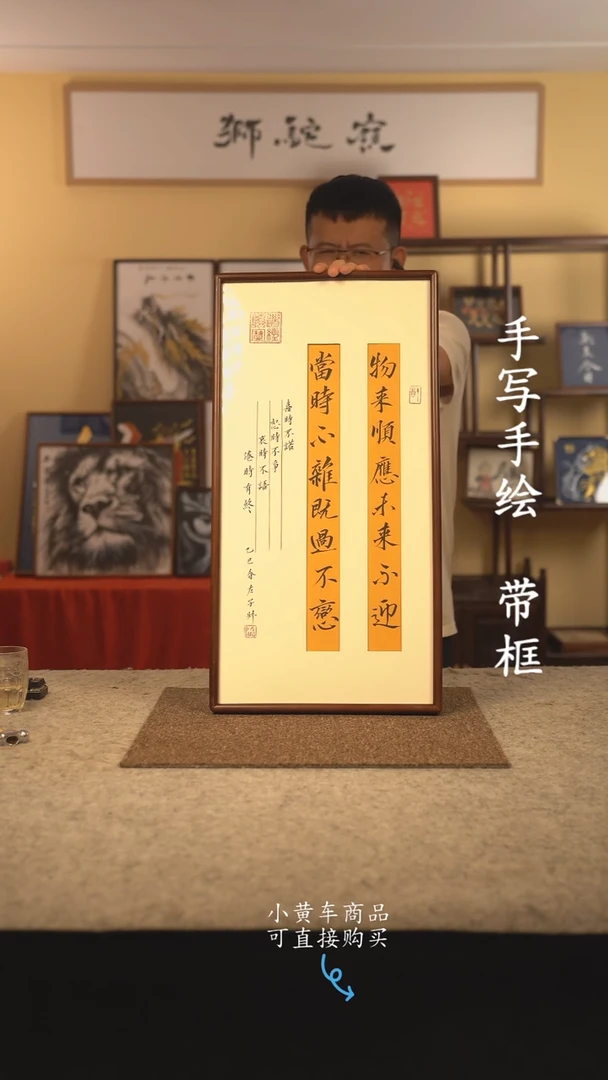 獅駝
物来順應未来不迎
當時不雜既過不戀
喜時不諾
時不争
哀時不語
時有終
乙巳春
手写手绘 带框
小黄车商品
可直接购买